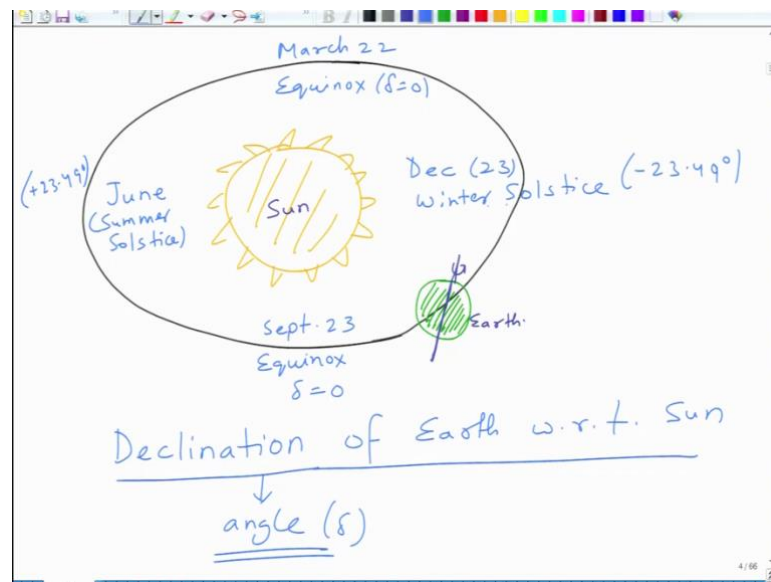 March 22
Equinox (δ=0)
(+23.49°)
June
(Summer
Solstice)
Sun
Dec (23)
Winter Solstice (-23.49°)
Earth.
Sept. 23
Equinox
δ=0
Declination of Earth w.r.t. Sun
angle (δ)
4/66